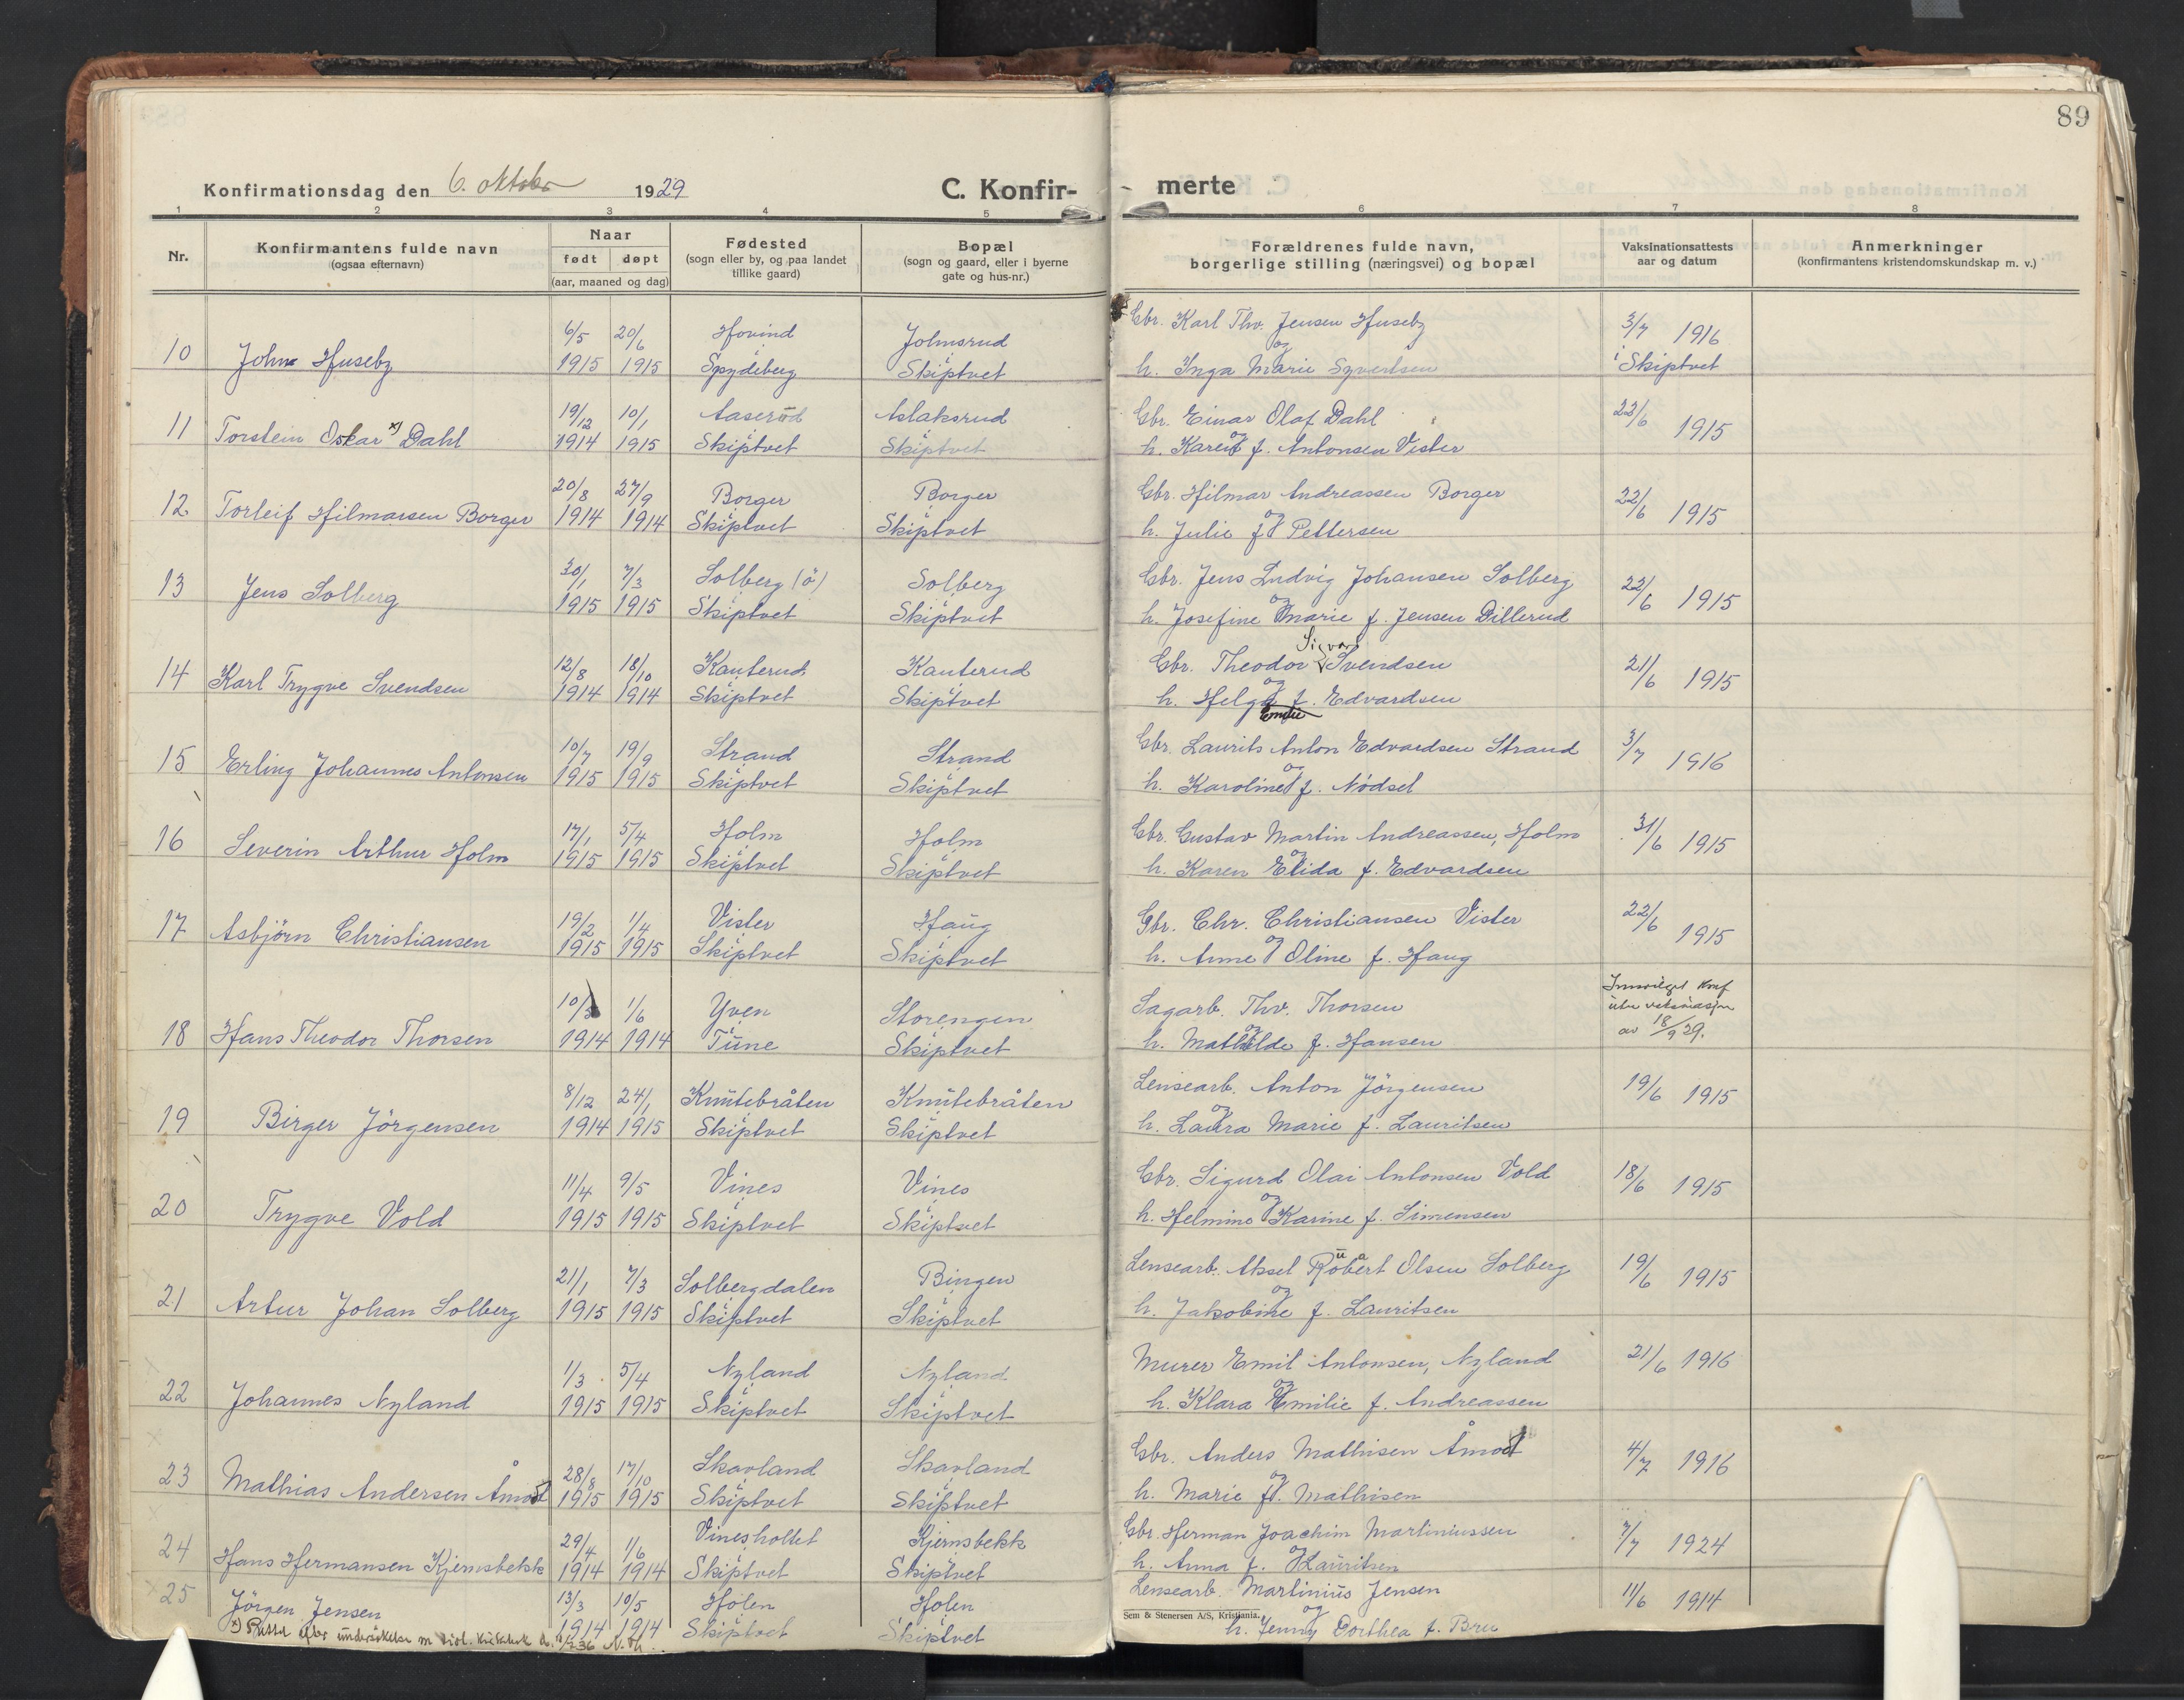 89
Konfirmationsdag den 6. oktober 1929
C. Konfir-
merte
1 2 3 4 5 6 7 8
Nr.
Konfirmantens fulde navn
(ogsaa efternavn)
Naar
født døpt
(aar, maaned og dag)
Fødested
(sogn eller by, og paa landet
tillike gaard)
Bopæl
(sogn og gaard, eller i byerne
gate og hus-nr.)
Forældrenes fulde navn,
borgerlige stilling (næringsvei) og bopæl
Vaksinationsattests
aar og datum
Anmerkninger
(konfirmantens kristendomskundskap m. v.)
6/5 20/6 Hovind Jolmsrud Gbr. Karl Thv. Jensen Huseby 3/7 1916
10 John Huseby 1915 1915 Spydeberg Skiptvet og h. Inga Marie Syvertsen i Skiptvet
19/12 10/1 Aaseröd Aslaksrud Gbr. Einar Olaf Dahl 22/6
11 Torstein Oskar x) Dahl 1914 1915 Skiptvet Skiptvet og h. Karen f. Antonsen Vister 1915
20/8 27/9 Borger Borger Gbr. Hilmar Andreassen Borger 22/6
12 Torleif Hilmarsen Borger 1914 1914 Skiptvet Skiptvet og h. Julie f. Pettersen 1915
30/1 7/3 Solberg (ö) Solberg Gbr. Jens Ludvig Johansen Solberg 22/6
13 Jens Solberg 1915 1915 Skiptvet Skiptvet og h. Josefine Marie f. Jensen Dillerud 1915
12/8 18/10 Kauterud Kauterud Gbr. Theodor Sigvart Svendsen 21/6
14 Karl Trygve Svendsen 1914 1914 Skiptvet Skiptvet og h. Helga Emilie f. Edvardsen 1915
10/7 19/9 Strand Strand Gbr. Laurits Anton Edvardsen Strand 3/7
15 Erling Johannes Antonsen 1915 1915 Skiptvet Skiptvet og h. Karoline f. Nödset 1916
17/1 5/4 Holm Holm Gbr. Gustav Martin Andreassen, Holm 31/6
16 Severin Arthur Holm 1915 1915 Skiptvet Skiptvet og h. Karen Elida f. Edvardsen 1915
19/2 1/4 Vister Haug Gbr. Chr. Christiansen Vister 22/6
17 Asbjörn Christiansen 1915 1915 Skiptvet Skiptvet og h. Anne Oline f. Haug 1915
10/3 1/6 Yven Storengen Sagarb. Thv. Thorsen Innvilget Konf
18 Hans Theodor Thorsen 1914 1914 Tune Skiptvet og h. Mathilde f. Hansen uten vaksinasjon av 18/9 29.
8/12 24/1 Knutebråten Knutebråten Lensearb. Anton Jörgensen 19/6
19 Birger Jörgensen 1914 1915 Skiptvet Skiptvet og h. Laura Marie f. Lauritsen 1915
11/4 9/5 Vines Vines Gbr. Sigurd Olai Antonsen Vold 18/6
20 Trygve Vold 1915 1915 Skiptvet Skiptvet og h. Helmine Karine f. Simensen 1915
21/1 7/3 Solbergdalen Bingen Lensearb. Aksel Robert Olsen Solberg 19/6
21 Artur Johan Solberg 1915 1915 Skiptvet Skiptvet og h. Jakobine f. Lauritsen 1915
1/3 5/4 Nyland Nyland Murer Emil Antonsen, Nyland 21/6
22 Johannes Nyland 1915 1915 Skiptvet Skiptvet og h. Klara Emilie f. Andreassen 1916
28/8 17/10 Skavland Skavland Gbr. Anders Mathisen Åmodt 4/7
23 Mathias Andersen Åmodt 1915 1915 Skiptvet Skiptvet og h. Marie f. Mathisen 1916
29/4 1/6 Vinesholtet Kjernsbekk Gbr. Herman Joachim Martiniussen 7/7
24 Hans Hermansen Kjernsbekk 1914 1914 Skiptvet Skiptvet og h. Anna f. Lauritsen 1924
13/3 10/5 Holen Holen Lensearb. Martinius Jensen 11/6
25 Jörgen Jensen 1914 1914 Skiptvet Skiptvet og h. Jenny Dorthea f. Bru 1914
Sem & Stenersen A/S, Kristiania.